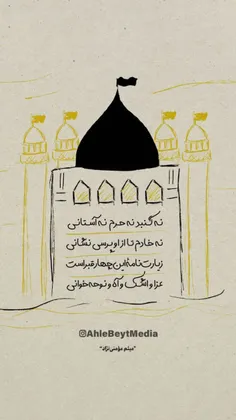 نه گنبد نه حرم نه آستانی
نه خادم تا از او پرسی نشانی
زیارت‌نامهٔ این چهار قبر است
عزا و اشک و آه و نوحه‌خوانی
@AhleBeytMedia
"میثم مؤمنی‌نژاد"